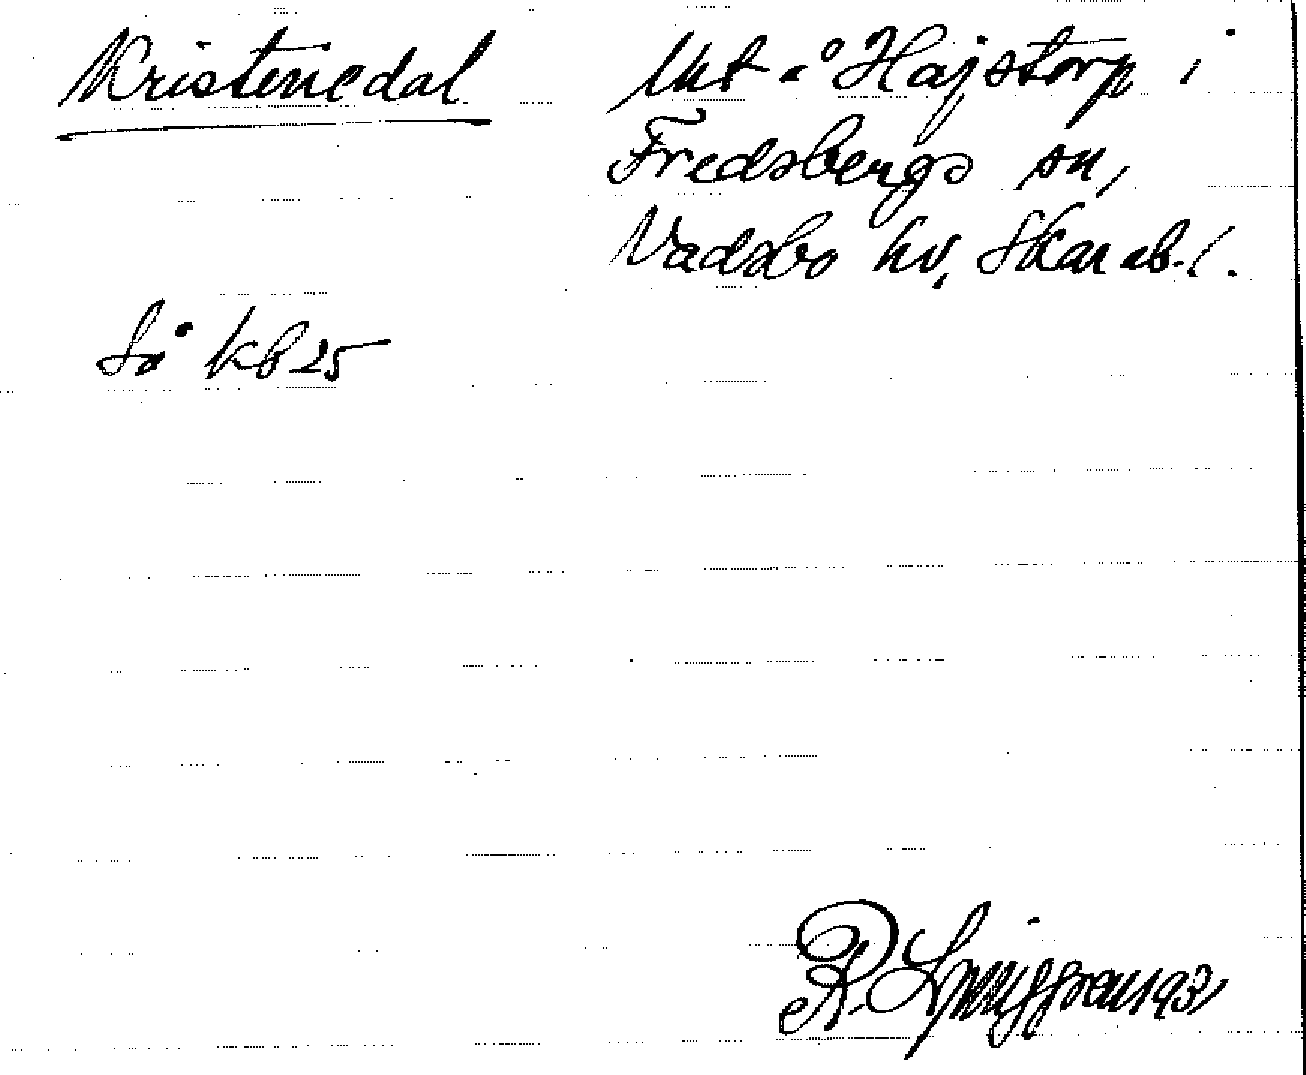 Kristinedal
Unt å Hajstorp i
Fredsbergs sn,
Vadsbo hd, Skarab. l.
Så kb 25
R. Ljunggren 1931